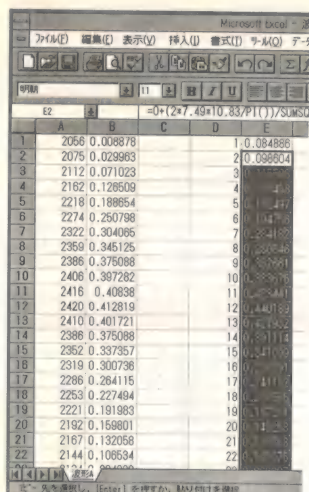 Microsoft Excel -
ファイル(F) 編集(E) 表示(V) 挿入(I) 書式(T) ツール(O) デー
明朝 11 B I U
E2 =0+(2*7.49*10.83/PI())/SUMSQ
A B C D E
1 2056 0.006878 1 0.084886
2 2075 0.029963 2 0.098604
3 2112 0.071023 3
4 2162 0.126509 4
5 2218 0.188654 5
6 2274 0.250798 6
7 2322 0.304065 7
8 2359 0.345125 8
9 2386 0.375088 9
10 2406 0.397282 10
11 2416 0.40838 11
12 2420 0.412819 12
13 2410 0.401721 13
14 2386 0.375088 14
15 2352 0.337357 15
16 2319 0.300736 16
17 2286 0.264115 17
18 2253 0.227494 18
19 2221 0.191983 19
20 2192 0.159801 20
21 2167 0.132058 21
22 2144 0.106534 22
波形A
コピー先を選択し、[Enter] を押すか、貼り付けを選択